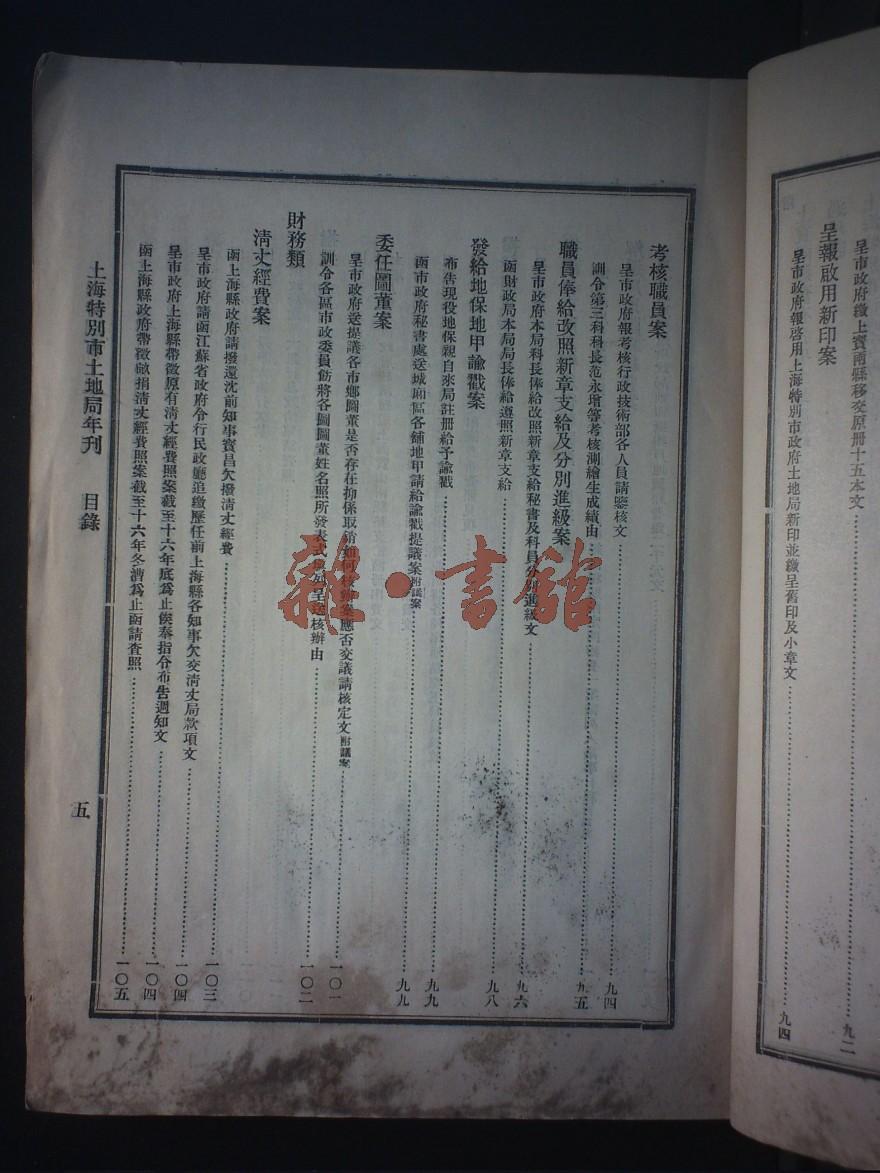 呈市政府繳上寶兩縣移交原册十五本文⋯⋯九二
呈報啟用新印案
呈市政府報啓用上海特別市政府土地局新印並繳呈舊印及小章文⋯⋯九四
考核職員案
呈市政府報考核行政技術部各人員請鑒核文⋯⋯九四
訓令第三科科長范永增等考核測繪生成績由⋯⋯九五
職員俸給改照新章支給及分別進級案
呈市政府本局科長俸給改照新章支給秘書及科員分別進級文⋯⋯九六
函財政局本局局長俸給遵照新章支給⋯⋯九八
發給地保地甲諭戳案
布告現役地保親自來局註册給予諭戳⋯⋯九九
函市政府秘書處送城廂區各舖地甲請給諭戳提議案附議案⋯⋯九九
委任圖董案
呈市政府送提議各市鄉圖董是否存在抑係取銷如何核辦案應否交議請核定文附議案⋯⋯一〇一
訓令各區市政委員飭將各圖圖董姓名照所發表式 列呈送核辦由⋯⋯一〇二
財務類
清丈經費案
函上海縣政府請撥還沈前知事寶昌欠撥清丈經費⋯⋯一〇三
呈市政府請函江蘇省政府令行民政廳追繳歷任前上海縣各知事欠交清丈局款項文⋯⋯一〇四
呈市政府上海縣帶徵原有清丈經費照案截至十六年底爲止俟奉指令布告週知文⋯⋯一〇四
函上海縣政府帶徵畝捐清丈經費照案截至十六年冬漕爲止函請查照⋯⋯一〇五
上海特別市土地局年刊 目錄
五
雜·書館